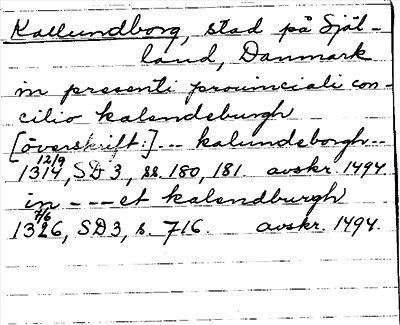 Kallundborg, stad på Själ-
land, Danmark
in presenti provinciali con-
cilio kalendeburgh
[överskrift:]--- kalundeborgh--
12/9
1314, SD 3, ss. 180, 181. avskr. 1494
in - - - et kalendburgh
7/6
1326, SD 3, s. 716. avskr. 1494.